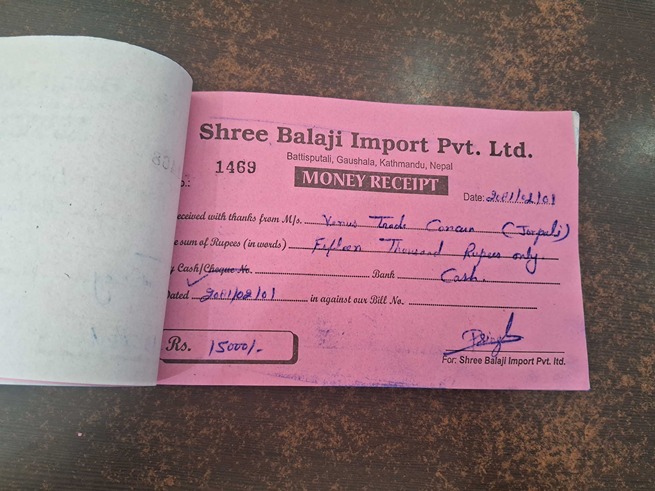 Shree Balaji Import Pvt. Ltd.
Battisputali, Gaushala, Kathmandu, Nepal
1469
MONEY RECEIPT
Date: 2081/02/01
eceived with thanks from M/s. Venus Trade Concern
e sum of Rupees (in words) Fifteen Thousand Rupees only
Cash/Cheque No. Bank Cash.
Dated 2081/02/01 in against our Bill No.
Rs. 15000/-
For: Shree Balaji Import Pvt. ltd.